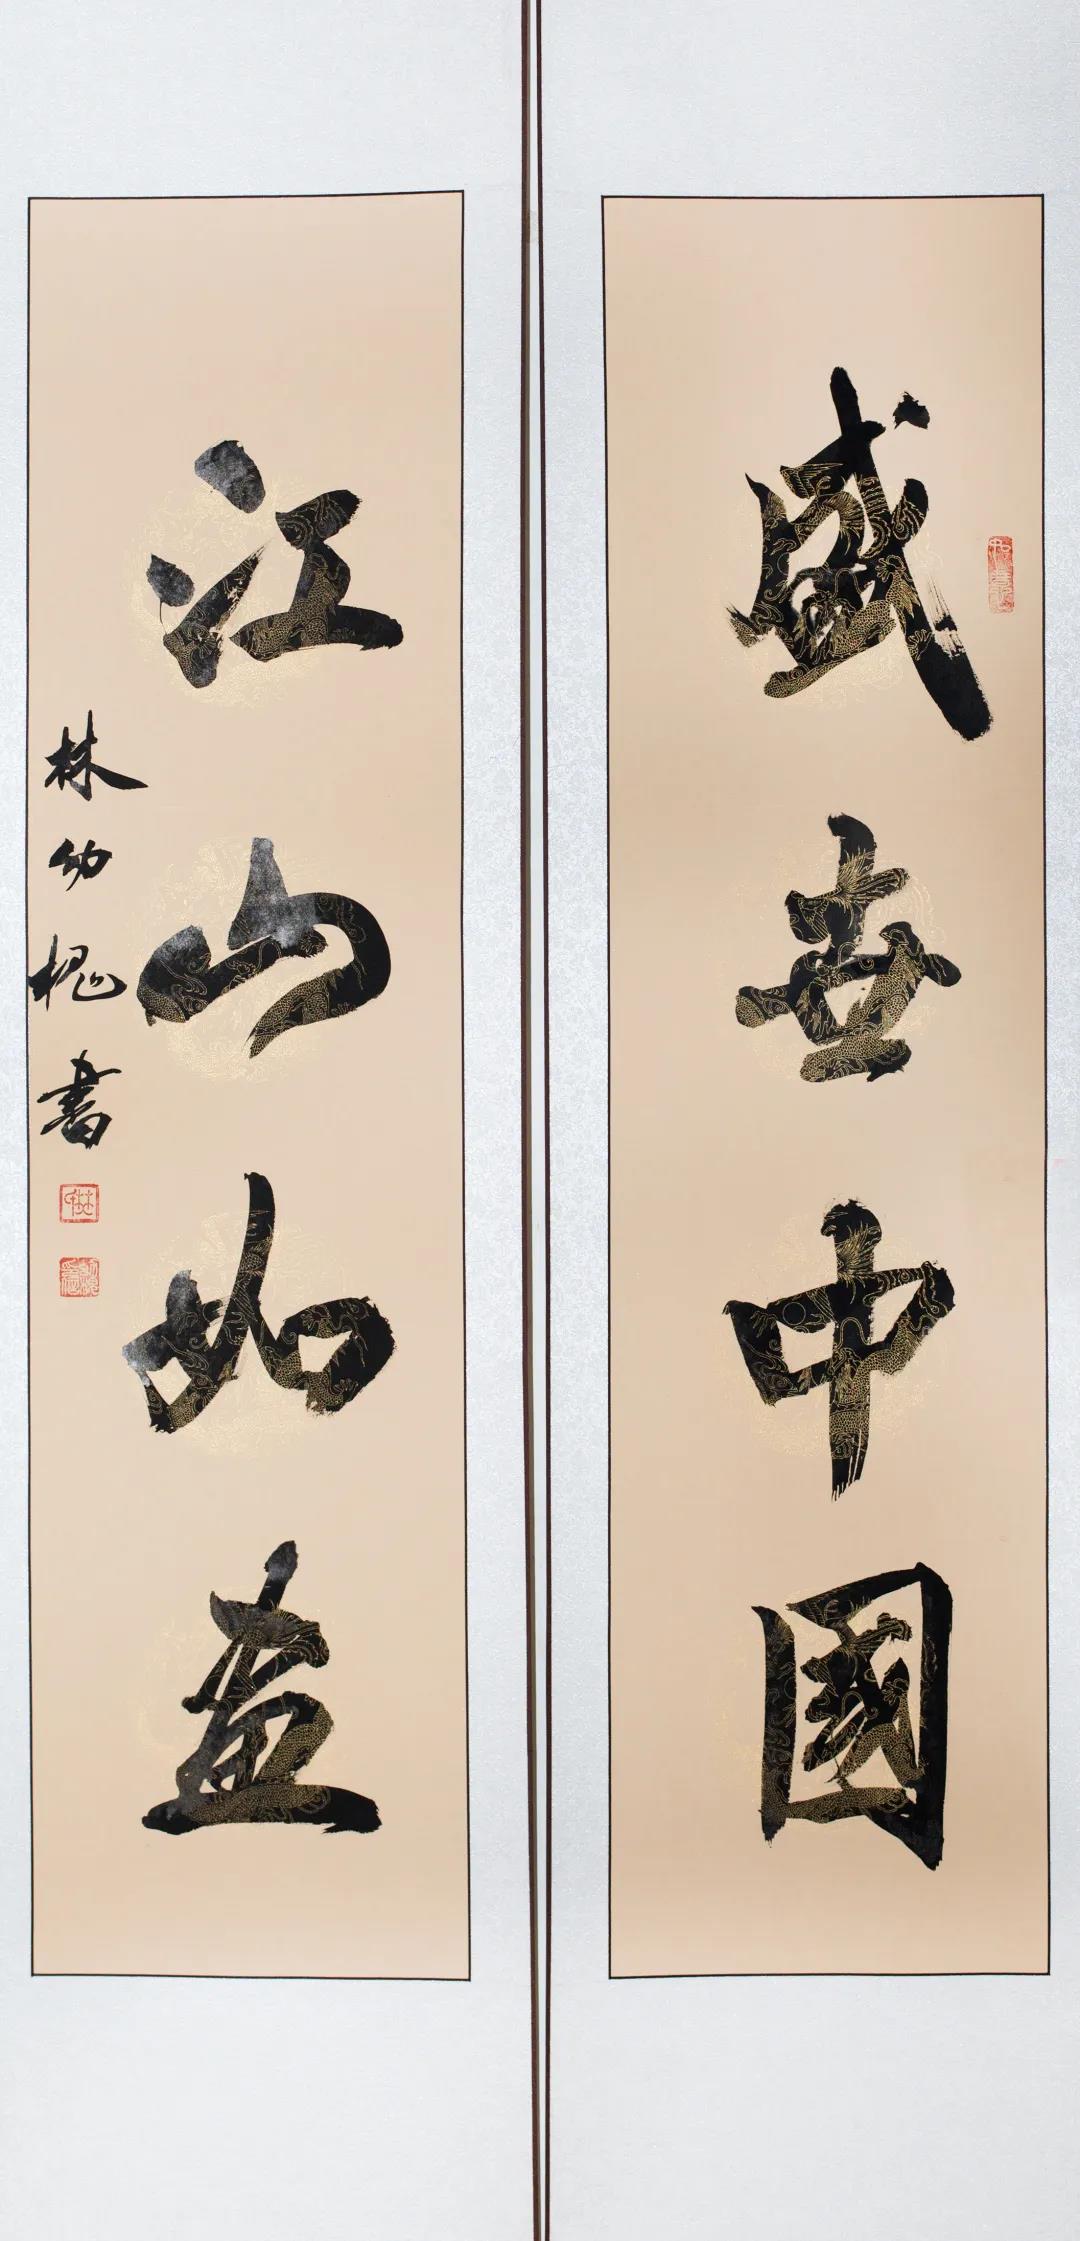 盛世中國
江山如画
林幼槐書